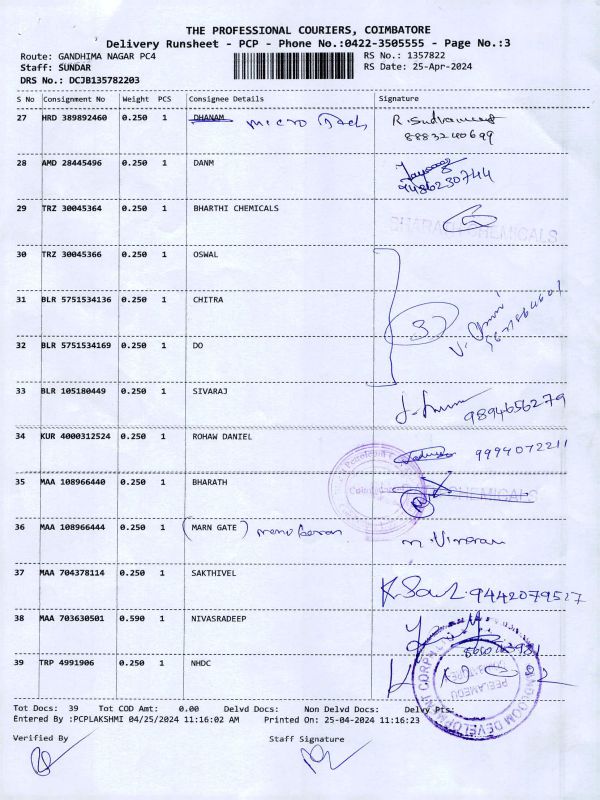 THE PROFESSIONAL COURIERS, COIMBATORE
Delivery Runsheet - PCP - Phone No.:0422-3505555 - Page No.:3
Route: GANDHIMA NAGAR PC4 RS No.: 1357822
Staff: SUNDAR RS Date: 25-Apr-2024
DRS No.: DCJB135782203
S No Consignment No Weight PCS Consignee Details Signature
27 HRD 389892460 0.250 1 DHANAM micro Tech
8883240699
28 AMD 28445496 0.250 1 DANM
9486230744
29 TRZ 30045364 0.250 1 BHARTHI CHEMICALS
BHARATH CHEMICALS
30 TRZ 30045366 0.250 1 OSWAL
31 BLR 5751534136 0.250 1 CHITRA
32 BLR 5751534169 0.250 1 DO
33 BLR 105180449 0.250 1 SIVARAJ 9894656279
34 KUR 4000312524 0.250 1 ROHAW DANIEL 9994072211
35 MAA 108966440 0.250 1 BHARATH CHEMICALS
36 MAA 108966444 0.250 1 (MARN GATE)
37 MAA 704378114 0.250 1 SAKTHIVEL 9442079527
38 MAA 703630501 0.590 1 NIVASRADEEP
39 TRP 4991906 0.250 1 NHDC
HANDLOOM DEVELOPMENT CORP
PEELAMEDU
Tot Docs: 39 Tot COD Amt: 0.00 Delvd Docs: Non Delvd Docs: Delvy Pts:
Entered By :PCPLAKSHMI 04/25/2024 11:16:02 AM Printed On: 25-04-2024 11:16:23
Verified By Staff Signature